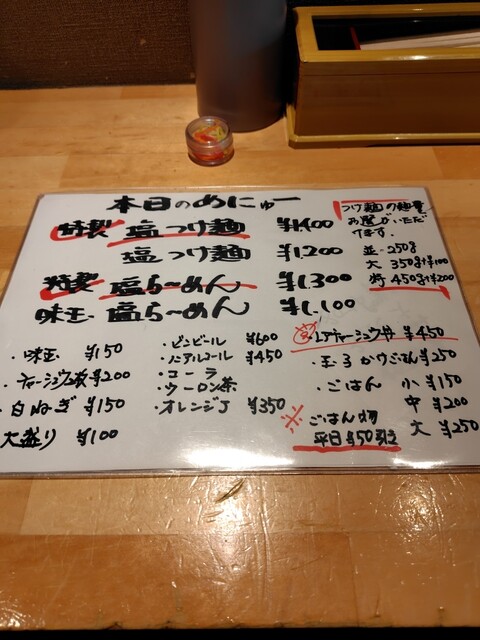 本日のめにゅー
特製 塩つけ麺 ¥1,400
塩つけ麺 ¥1,200
特製 塩らーめん ¥1,300
味玉 塩らーめん ¥1,100
つけ麺の麺量
お選びいただ
けます。
並-250g
大 350g+¥100
特 450g+¥200
・味玉 ¥150
・チャーシュー2枚 ¥200
・白ねぎ ¥150
大盛り ¥100
・ビンビール ¥600
・ノンアルコール ¥450
・コーラ
・ウーロン茶
・オレンジJ ¥350
・レアチャーシュー丼 ¥450
・玉子かけごはん ¥250
・ごはん 小 ¥150
中 ¥200
大 ¥250
※ごはん物
平日¥50引き